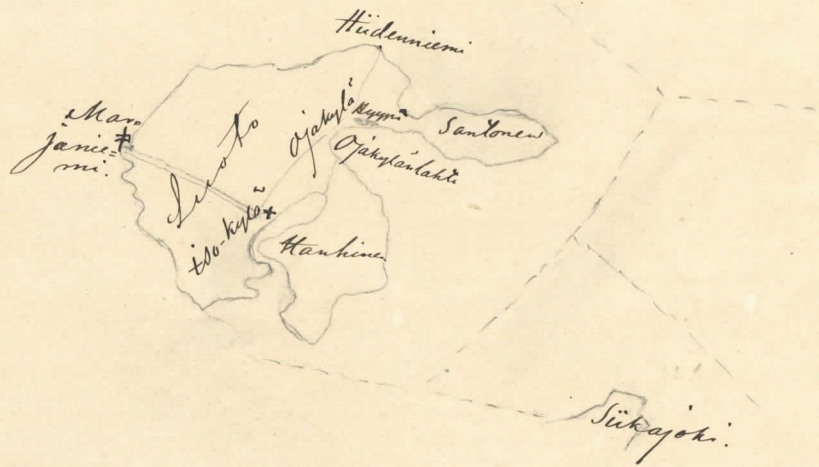 Hiidenniemi
Mar-
janie-
mi.
Luoto
Ojakylä
Kyyni
Santonen
Ojakylänlahti
iso-kylä
Hanhinen
Siikajoki.